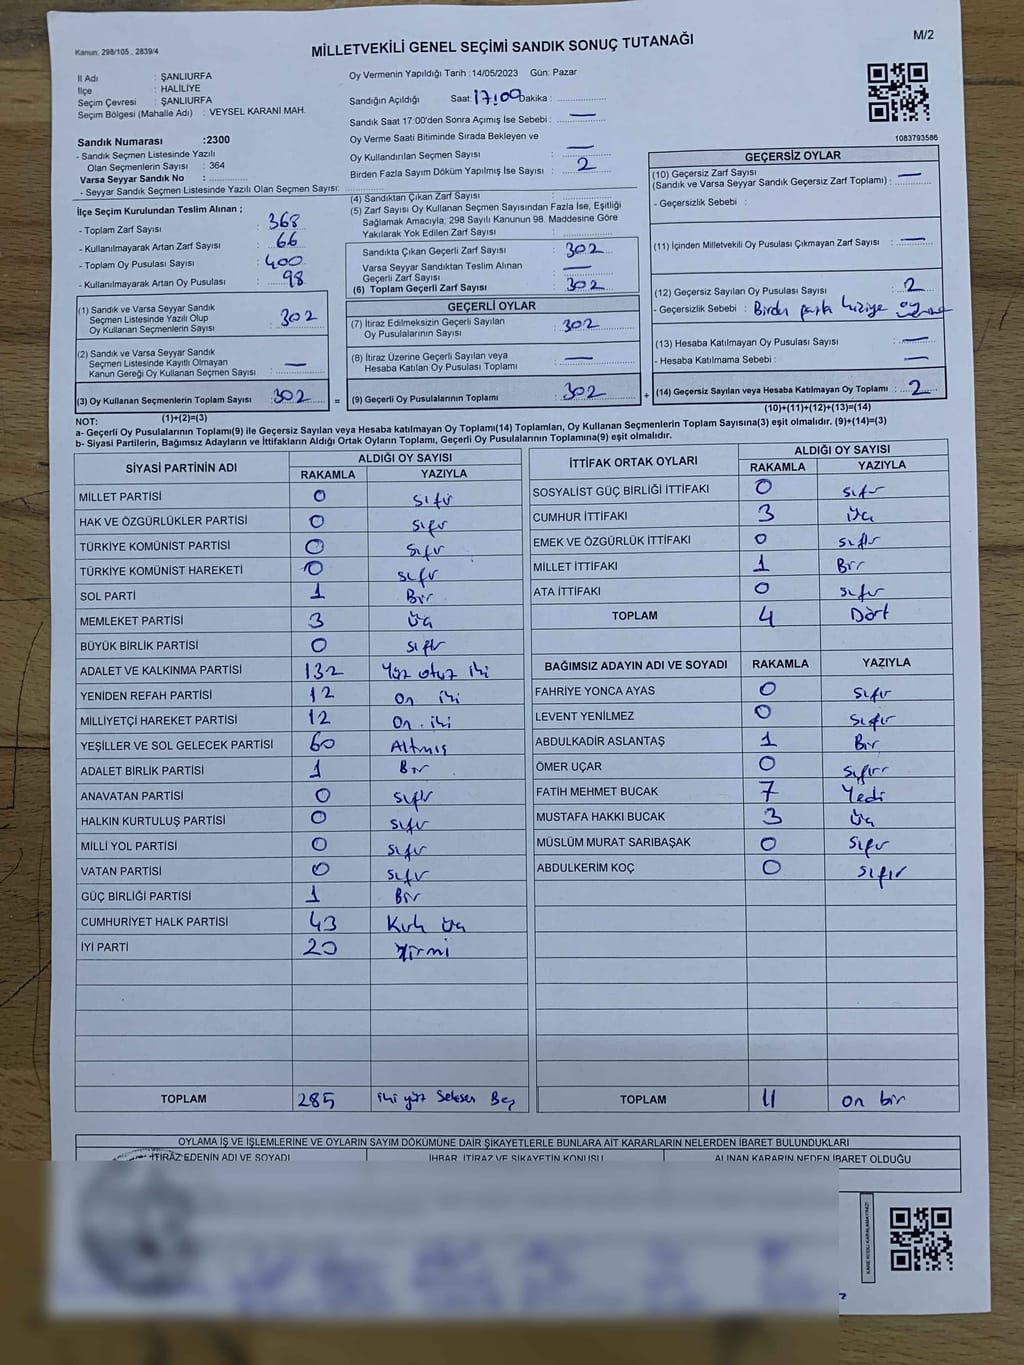 Kanun: 298/105 , 2839/4
MİLLETVEKİLİ GENEL SEÇİMİ SANDIK SONUÇ TUTANAĞI
M/2
İl Adı : ŞANLIURFA
İlçe : HALİLİYE
Seçim Çevresi : ŞANLIURFA
Seçim Bölgesi (Mahalle Adı) : VEYSEL KARANİ MAH.
Sandık Numarası :2300
- Sandık Seçmen Listesinde Yazılı
Olan Seçmenlerin Sayısı : 364
Varsa Seyyar Sandık No :
- Seyyar Sandık Seçmen Listesinde Yazılı Olan Seçmen Sayısı:
Oy Vermenin Yapıldığı Tarih :14/05/2023 Gün: Pazar
Sandığın Açıldığı Saat: 17:00 Dakika :
Sandık Saat 17:00'den Sonra Açımış İse Sebebi : —
Oy Verme Saati Bitiminde Sırada Bekleyen ve
Oy Kullandırılan Seçmen Sayısı : —
Birden Fazla Sayım Döküm Yapılmış İse Sayısı : 2
1083793586
İlçe Seçim Kurulundan Teslim Alınan ;
- Toplam Zarf Sayısı : 368
- Kullanılmayarak Artan Zarf Sayısı : 66
- Toplam Oy Pusulası Sayısı : 400
- Kullanılmayarak Artan Oy Pusulası : 98
(1) Sandık ve Varsa Seyyar Sandık
Seçmen Listesinde Yazılı Olup
Oy Kullanan Seçmenlerin Sayısı : 302
(2) Sandık ve Varsa Seyyar Sandık
Seçmen Listesinde Kayıtlı Olmayan
Kanun Gereği Oy Kullanan Seçmen Sayısı : —
(3) Oy Kullanan Seçmenlerin Toplam Sayısı : 302
(1)+(2)=(3)
(4) Sandıktan Çıkan Zarf Sayısı :
(5) Zarf Sayısı Oy Kullanan Seçmen Sayısından Fazla İse, Eşitliği
Sağlamak Amacıyla; 298 Sayılı Kanunun 98. Maddesine Göre
Yakılarak Yok Edilen Zarf Sayısı :
Sandıkta Çıkan Geçerli Zarf Sayısı : 302
Varsa Seyyar Sandıktan Teslim Alınan
Geçerli Zarf Sayısı : —
(6) Toplam Geçerli Zarf Sayısı : 302
GEÇERLİ OYLAR
(7) İtiraz Edilmeksizin Geçerli Sayılan
Oy Pusulalarının Sayısı : 302
(8) İtiraz Üzerine Geçerli Sayılan veya
Hesaba Katılan Oy Pusulası Toplamı : —
= (9) Geçerli Oy Pusulalarının Toplamı : 302 +
GEÇERSİZ OYLAR
(10) Geçersiz Zarf Sayısı
(Sandık ve Varsa Seyyar Sandık Geçersiz Zarf Toplamı) : —
- Geçersizlik Sebebi :
(11) İçinden Milletvekili Oy Pusulası Çıkmayan Zarf Sayısı : —
(12) Geçersiz Sayılan Oy Pusulası Sayısı : 2
- Geçersizlik Sebebi :
(13) Hesaba Katılmayan Oy Pusulası Sayısı : —
- Hesaba Katılmama Sebebi : —
(14) Geçersiz Sayılan veya Hesaba Katılmayan Oy Toplamı : 2
(10)+(11)+(12)+(13)=(14)
NOT:
a- Geçerli Oy Pusulalarının Toplamı(9) ile Geçersiz Sayılan veya Hesaba Katılmayan Oy Toplamı(14) Toplamları, Oy Kullanan Seçmenlerin Toplam Sayısına(3) eşit olmalıdır. (9)+(14)=(3)
b- Siyasi Partilerin, Bağımsız Adayların ve İttifakların Aldığı Ortak Oyların Toplamı, Geçerli Oy Pusulalarının Toplamına(9) eşit olmalıdır.
SİYASİ PARTİNİN ADI ALDIĞI OY SAYISI
RAKAMLA YAZIYLA
MİLLET PARTİSİ 0 sıfır
HAK VE ÖZGÜRLÜKLER PARTİSİ 0 sıfır
TÜRKİYE KOMÜNİST PARTİSİ 0 sıfır
TÜRKİYE KOMÜNİST HAREKETİ 0 sıfır
SOL PARTİ 1 Bir
MEMLEKET PARTİSİ 3 üç
BÜYÜK BİRLİK PARTİSİ 0 sıfır
ADALET VE KALKINMA PARTİSİ 132 Yüz otuz iki
YENİDEN REFAH PARTİSİ 12 On iki
MİLLİYETÇİ HAREKET PARTİSİ 12 On iki
YEŞİLLER VE SOL GELECEK PARTİSİ 60 Altmış
ADALET BİRLİK PARTİSİ 1 Bir
ANAVATAN PARTİSİ 0 sıfır
HALKIN KURTULUŞ PARTİSİ 0 sıfır
MİLLİ YOL PARTİSİ 0 sıfır
VATAN PARTİSİ 0 sıfır
GÜÇ BİRLİĞİ PARTİSİ 1 Bir
CUMHURİYET HALK PARTİSİ 43 Kırk üç
İYİ PARTİ 20 Yirmi
TOPLAM 285 iki yüz Seksen Beş
İTTİFAK ORTAK OYLARI ALDIĞI OY SAYISI
RAKAMLA YAZIYLA
SOSYALİST GÜÇ BİRLİĞİ İTTİFAKI 0 sıfır
CUMHUR İTTİFAKI 3 üç
EMEK VE ÖZGÜRLÜK İTTİFAKI 0 sıfır
MİLLET İTTİFAKI 1 Bir
ATA İTTİFAKI 0 sıfır
TOPLAM 4 Dört
BAĞIMSIZ ADAYIN ADI VE SOYADI RAKAMLA YAZIYLA
FAHRİYE YONCA AYAS 0 sıfır
LEVENT YENİLMEZ 0 sıfır
ABDULKADİR ASLANTAŞ 1 Bir
ÖMER UÇAR 0 sıfır
FATİH MEHMET BUCAK 7 Yedi
MUSTAFA HAKKI BUCAK 3 üç
MÜSLÜM MURAT SARIBAŞAK 0 sıfır
ABDULKERİM KOÇ 0 sıfır
TOPLAM 11 on bir
OYLAMA İŞ VE İŞLEMLERİNE VE OYLARIN SAYIM DÖKÜMÜNE DAİR ŞİKAYETLERLE BUNLARA AİT KARARLARIN NELERDEN İBARET BULUNDUKLARI
İTİRAZ EDENİN ADI VE SOYADI İHBAR, İTİRAZ VE ŞİKAYETİN KONUSU ALINAN KARARIN NEDEN İBARET OLDUĞU